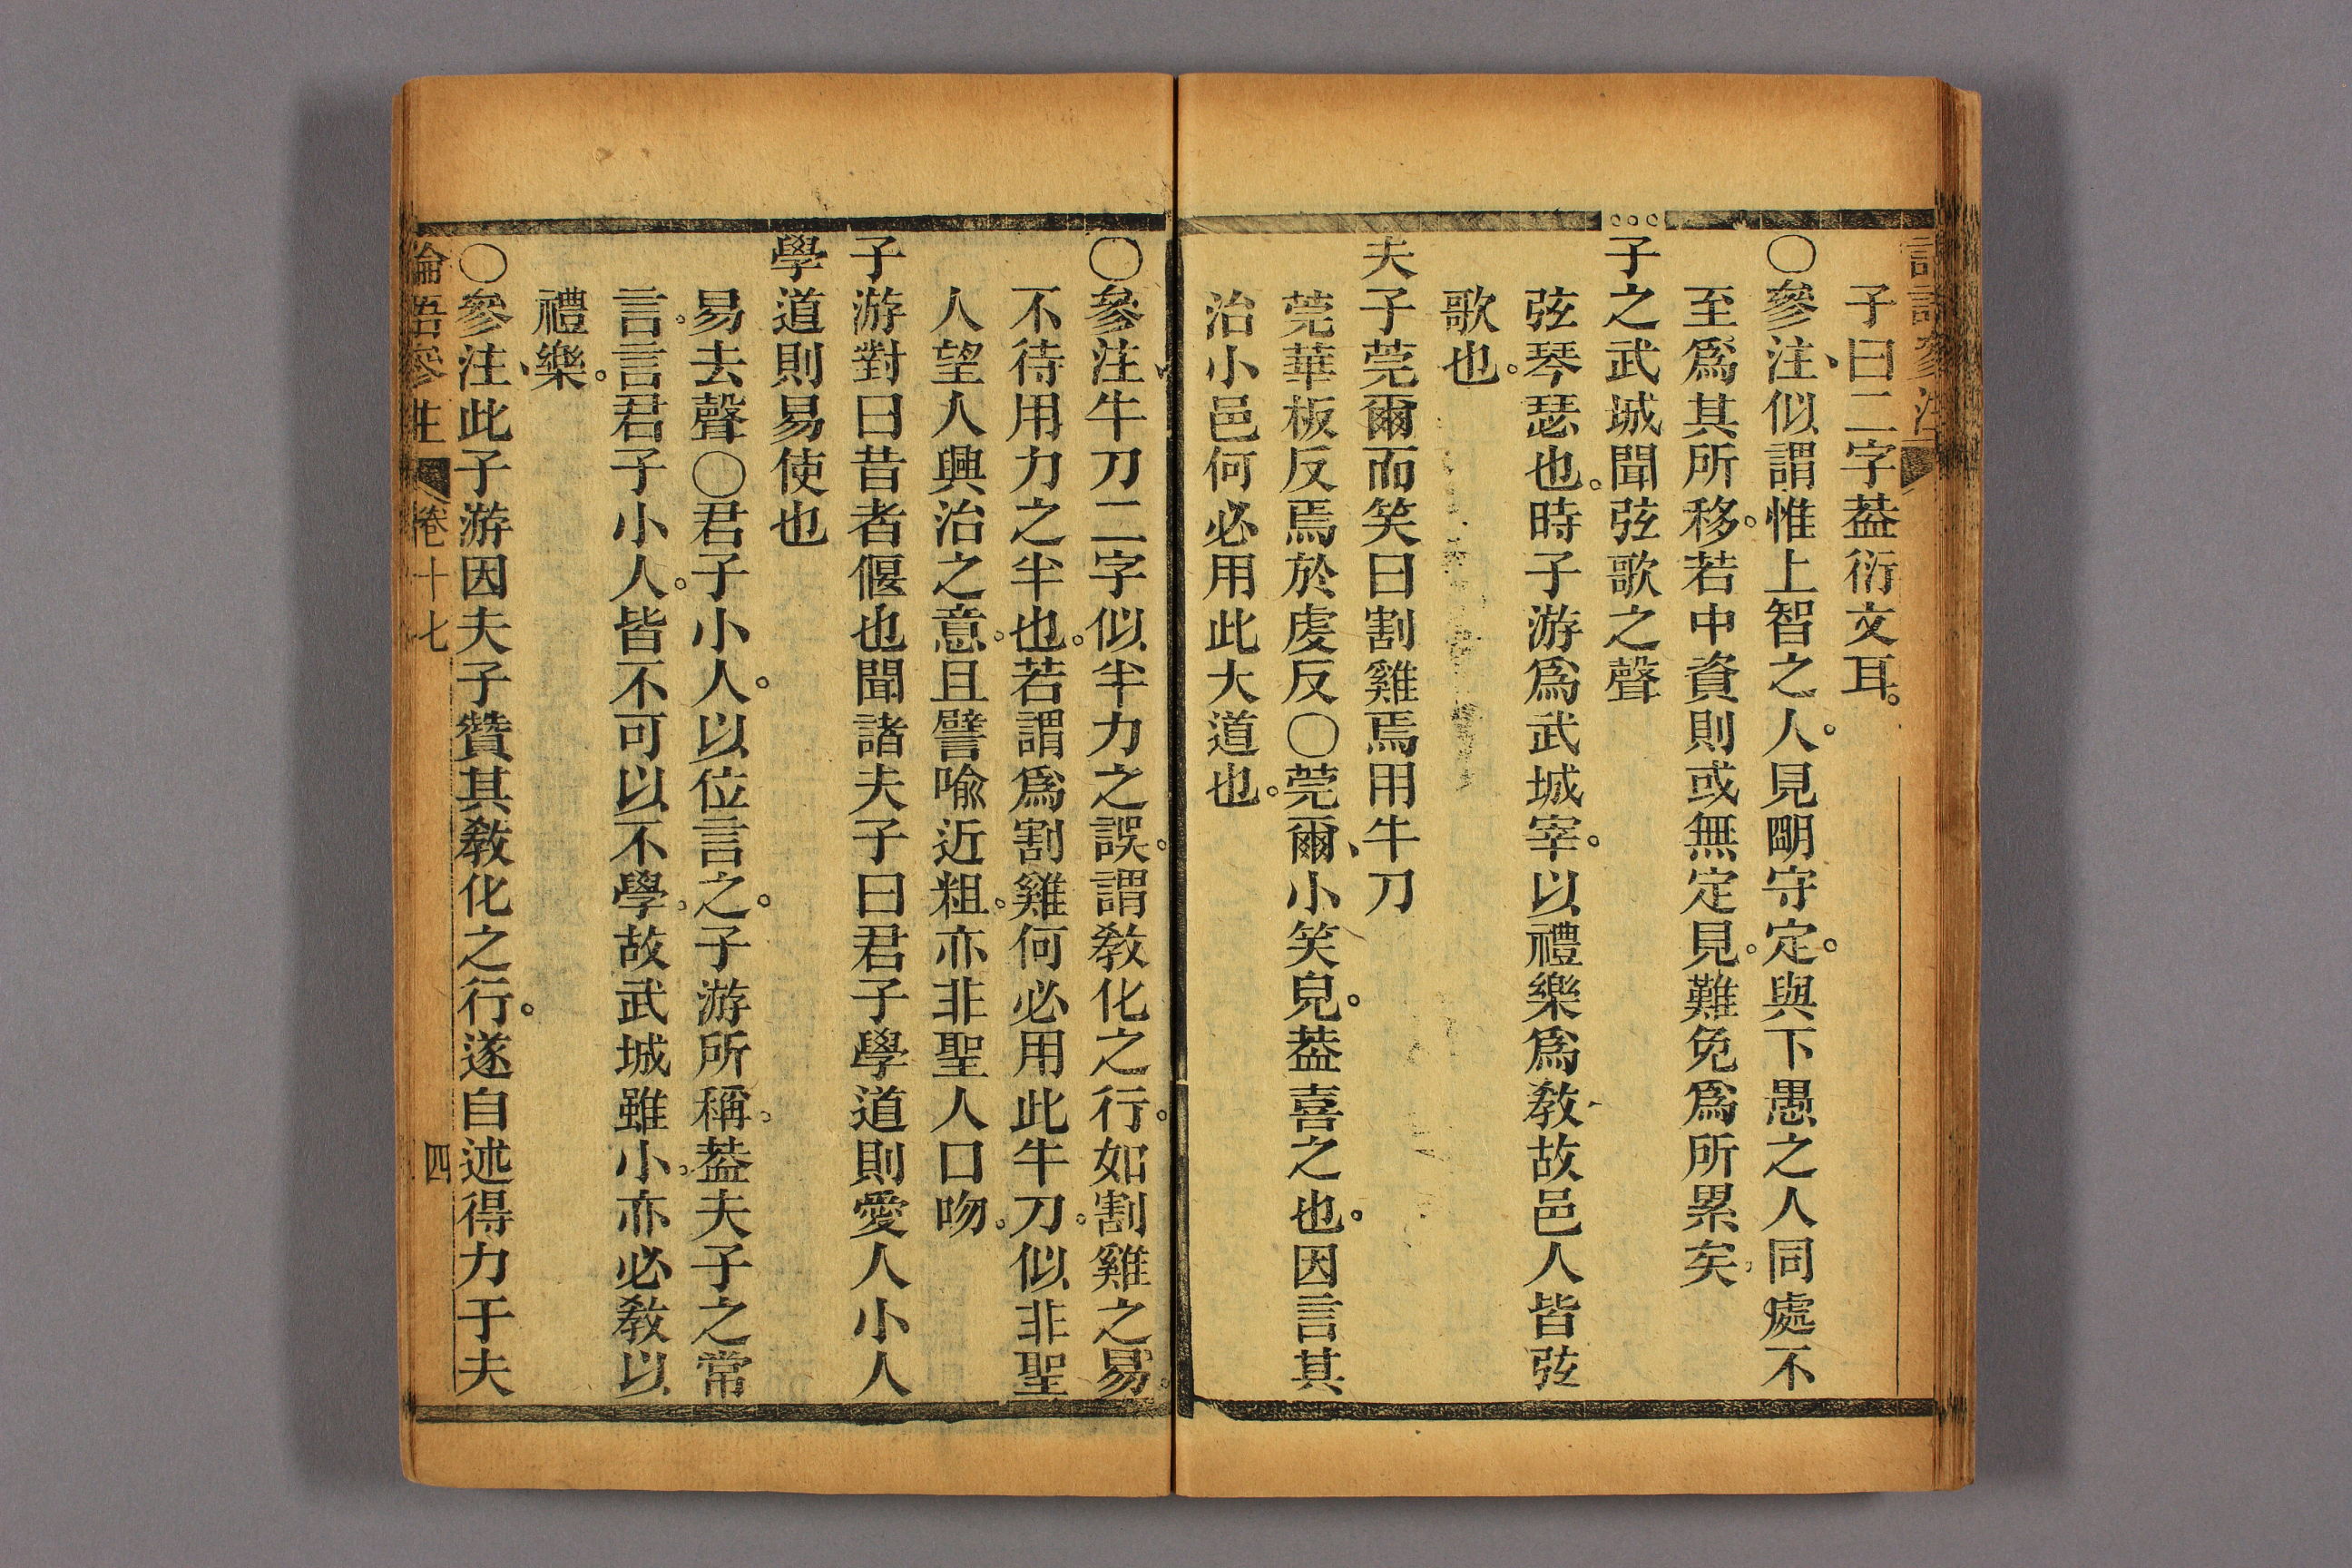 子曰二字葢衍文耳。
〇參注、似謂惟上智之人。見明守定。與下愚之人同處不
至爲其所移。若中資則或無定見。難免爲所累矣。
子之武城聞弦歌之聲
弦琴瑟也。時子游爲武城宰。以禮樂爲教故邑人皆弦
歌也。
夫子莞爾而笑曰割雞焉用牛刀
莞華板反焉於虔反〇莞爾、小笑皃。葢喜之也。因言其
治小邑何必用此大道也。
〇參注、牛刀二字似半力之誤。謂教化之行。如割雞之易。
不待用力之半也。若謂爲割雞何必用此牛刀。似非聖
人望人興治之意。且譬喩近粗。亦非聖人口吻。
子游對曰昔者偃也聞諸夫子曰君子學道則愛人小人
學道則易使也
易去聲〇君子小人。以位言之。子游所稱。葢夫子之常
言。言君子小人。皆不可以不學。故武城雖小。亦必教以
禮樂。
〇參注、此子游因夫子贊其教化之行。遂自述得力于夫
論語參注 卷十七 四